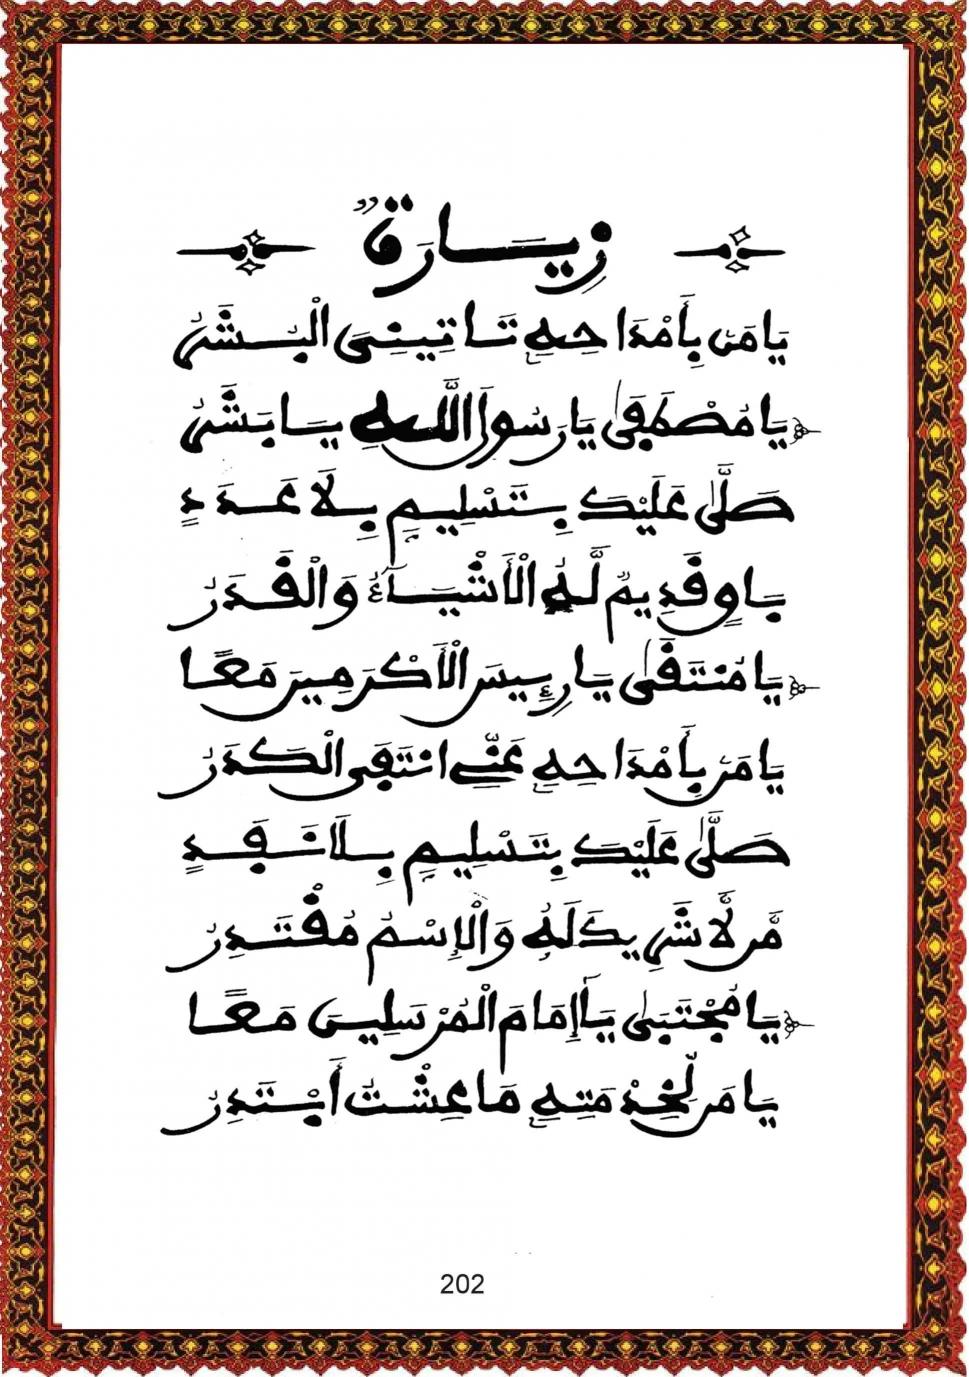 زِيَارَةٌ
يَا مَنْ بِأَمْدَاحِهِ تَاتِينِيَ الْبُشَرُ
يَا مُصْطَفَىٰ يَا رَسُولَ اللَّهِ يَا بَشَرُ
صَلَّىٰ عَلَيْكَ بِتَسْلِيمٍ بِلَا عَدَدٍ
بَاوٍ قَدِيمٌ لَّهُ الْأَشْيَآءُ وَالْقَدَرُ
يَا مُنْتَقَىٰ يَا رَئِيسَ الْأَكْرَمِينَ مَعًا
يَا مَنْ بِأَمْدَاحِهِ عَنِّي انْتَفَى الْكَدَرُ
صَلَّىٰ عَلَيْكَ بِتَسْلِيمٍ بِلَا نَفَدٍ
مَّن لَّا شَرِيكَ لَهُ وَالْإِسْمُ مُقْتَدِرُ
يَا مُجْتَبَىٰ يَا إِمَامَ الْمُرْسَلِينَ مَعًا
يَا مَن لِّخِدْمَتِهِ مَا عِشْتُ أَبْتَدِرُ
202